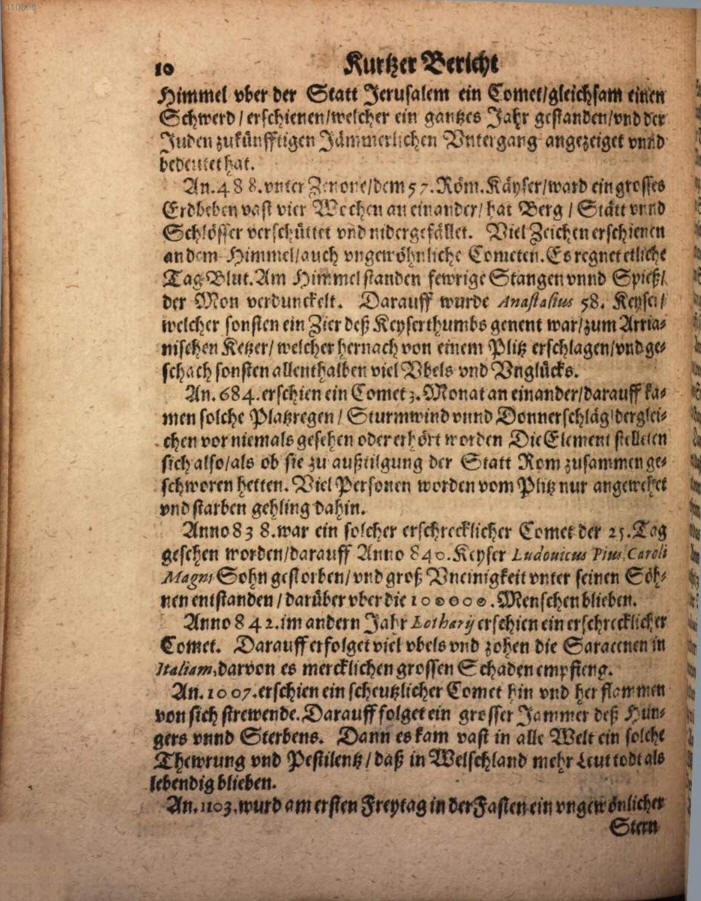 10 Kurtzer Bericht
Himmel vber der Statt Jerusalem ein Comet/gleichsam einen
Schwerd/erschienen/welcher ein gantzes Jahr gestanden/vnd der
Juden zukünfftigen Jämmerlichen Vntergang angezeiget vnnd
bedeutet hat.
An. 488. vnter Zenone/dem 57. Röm. Käyser/ward ein grosses
Erdbeben vast vier Wochen an einander/hat Berg/Stätt vnnd
Schlösser verschüttet vnd nidergefället. Viel Zeichen erschienen
an dem Himmel/auch vngewöhnliche Cometen. Es regnet etliche
Tag Blut. Am Himmel standen fewrige Stangen vnnd Spieß/
der Mon verdunckelt. Darauff wurde Anastasius 58. Keyser/
welcher sonsten ein Zier deß Keyserthumbs genent war/zum Arria-
nischen Ketzer/welcher hernach von einem Plitz erschlagen/vnd ge-
schach sonsten allenthalben viel Vbels vnd Vnglücks.
An. 684. erschien ein Comet 3. Monat an einander/darauff ka-
men solche Platzregen/Sturmwind vnnd Donnerschläg/derglei-
chen vor niemals gesehen oder erhört worden Die Element stelleten
sich also/als ob sie zu außtilgung der Statt Rom zusammen ge-
schworen hetten. Viel Personen worden vom Plitz nur angewehet
vnd starben gehling dahin.
Anno 838. war ein solcher erschrecklicher Comet der 25. Tag
gesehen worden/darauff Anno 840. Keyser Ludovicus Pius Caroli
Magni Sohn gestorben/vnd groß Vneinigkeit vnter seinen Söh-
nen entstanden/darüber vber die 100000. Menschen blieben.
Anno 842. im andern Jahr Lotharij erschien ein erschrecklicher
Comet. Darauff erfolget viel vbels vnd zohen die Saracenen in
Italiam, darvon es mercklichen grossen Schaden empfieng.
An. 1007. erschien ein scheutzlicher Comet hin vnd her flammen
von sich strewende. Darauff folget ein grosser Jammer deß Hun-
gers vnnd Sterbens. Dann es kam vast in alle Welt ein solche
Thewrung vnd Pestilentz/daß in Welschland mehr Leut todt als
lebendig blieben.
An. 1103. wurd am ersten Freytag in der Fasten ein vngewönlicher
Stern